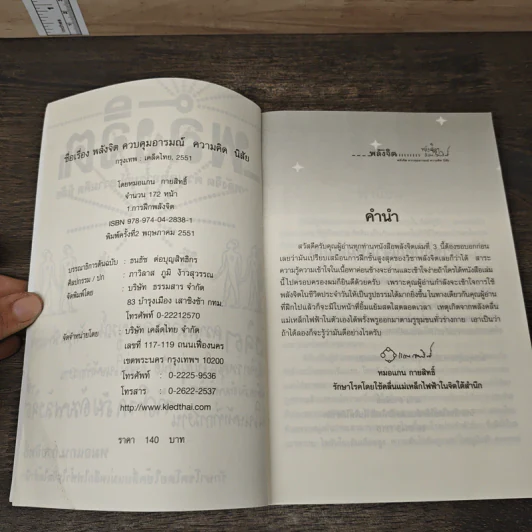 ชื่อเรื่อง พลังจิต ควบคุมอารมณ์ ความคิด นิสัย
กรุงเทพ , เคล็ดไทย, 2551
โดยหมอแกน กายสิทธิ์
จำนวน 172 หน้า
1.การฝึกพลังจิต
ISBN 978-974-04-2838-1
พิมพ์ครั้งที่2 พฤษภาคม 2551
บรรณาธิการต้นฉบับ : ธนธัช ต่อบุญสิทธิกร
ศิลปกรรม / ปก : ภาวิลาส ภูมิ งิ้วสุวรรณ
จัดพิมพ์โดย : บริษัท ธรรมสาร จำกัด
83 บำรุงเมือง เสาชิงช้า กทม
โทรศัพท์ 0-22212570
จัดจำหน่ายโดย : บริษัท เคล็ดไทย จำกัด
เลขที่ 117-119 ถนนเฟื่องนคร
เขตพระนคร กรุงเทพฯ 10200
โทรศัพท์ : 0-2225-9536
โทรสาร : 0-2622-2537
http://www.kledthai.com
ราคา 140 บาท
พลังจิต
คำนำ
สวัสดีครับคุณผู้อ่านทุกท่านหนังสือพลังจิตเล่มที่ 3 นี้ต้องขอบอกก่อน
เลยว่ามันเปรียบเสมือนการฝึกขั้นสูงสุดของวิชาพลังจิตเลยก็ว่าได้ สาระ
ความรู้ความเข้าใจในเนื้อหาค่อนข้างจะอ่านและเข้าใจง่ายถ้าใครได้หนังสือเล่ม
นี้ไปครอบครองผมก็ยินดีด้วยครับ เพราะคุณผู้อ่านกำลังจะเข้าใจการใช้
พลังจิตในชีวิตประจำวันให้เป็นรูปธรรมได้มากยิ่งขึ้นในทางเดียวกันคุณผู้อ่าน
ที่ฝึกไปแล้วก็จะมีใบหน้าที่ยิ้มแย้มสดใสตลอดเวลา เหตุเกิดจากพลังคลื่น
แม่เหล็กไฟฟ้าในตัวเองได้พรั่งพรูออกมาตามรูขุมขนทั่วร่างกาย เอาเป็นว่า
ถ้าได้ลองก็จะรู้ว่ามันดีอย่างไรครับ
หมอแกน กายสิทธิ์
รักษาโรคโดยใช้คลื่นแม่เหล็กไฟฟ้าในจิตใต้สำนึก